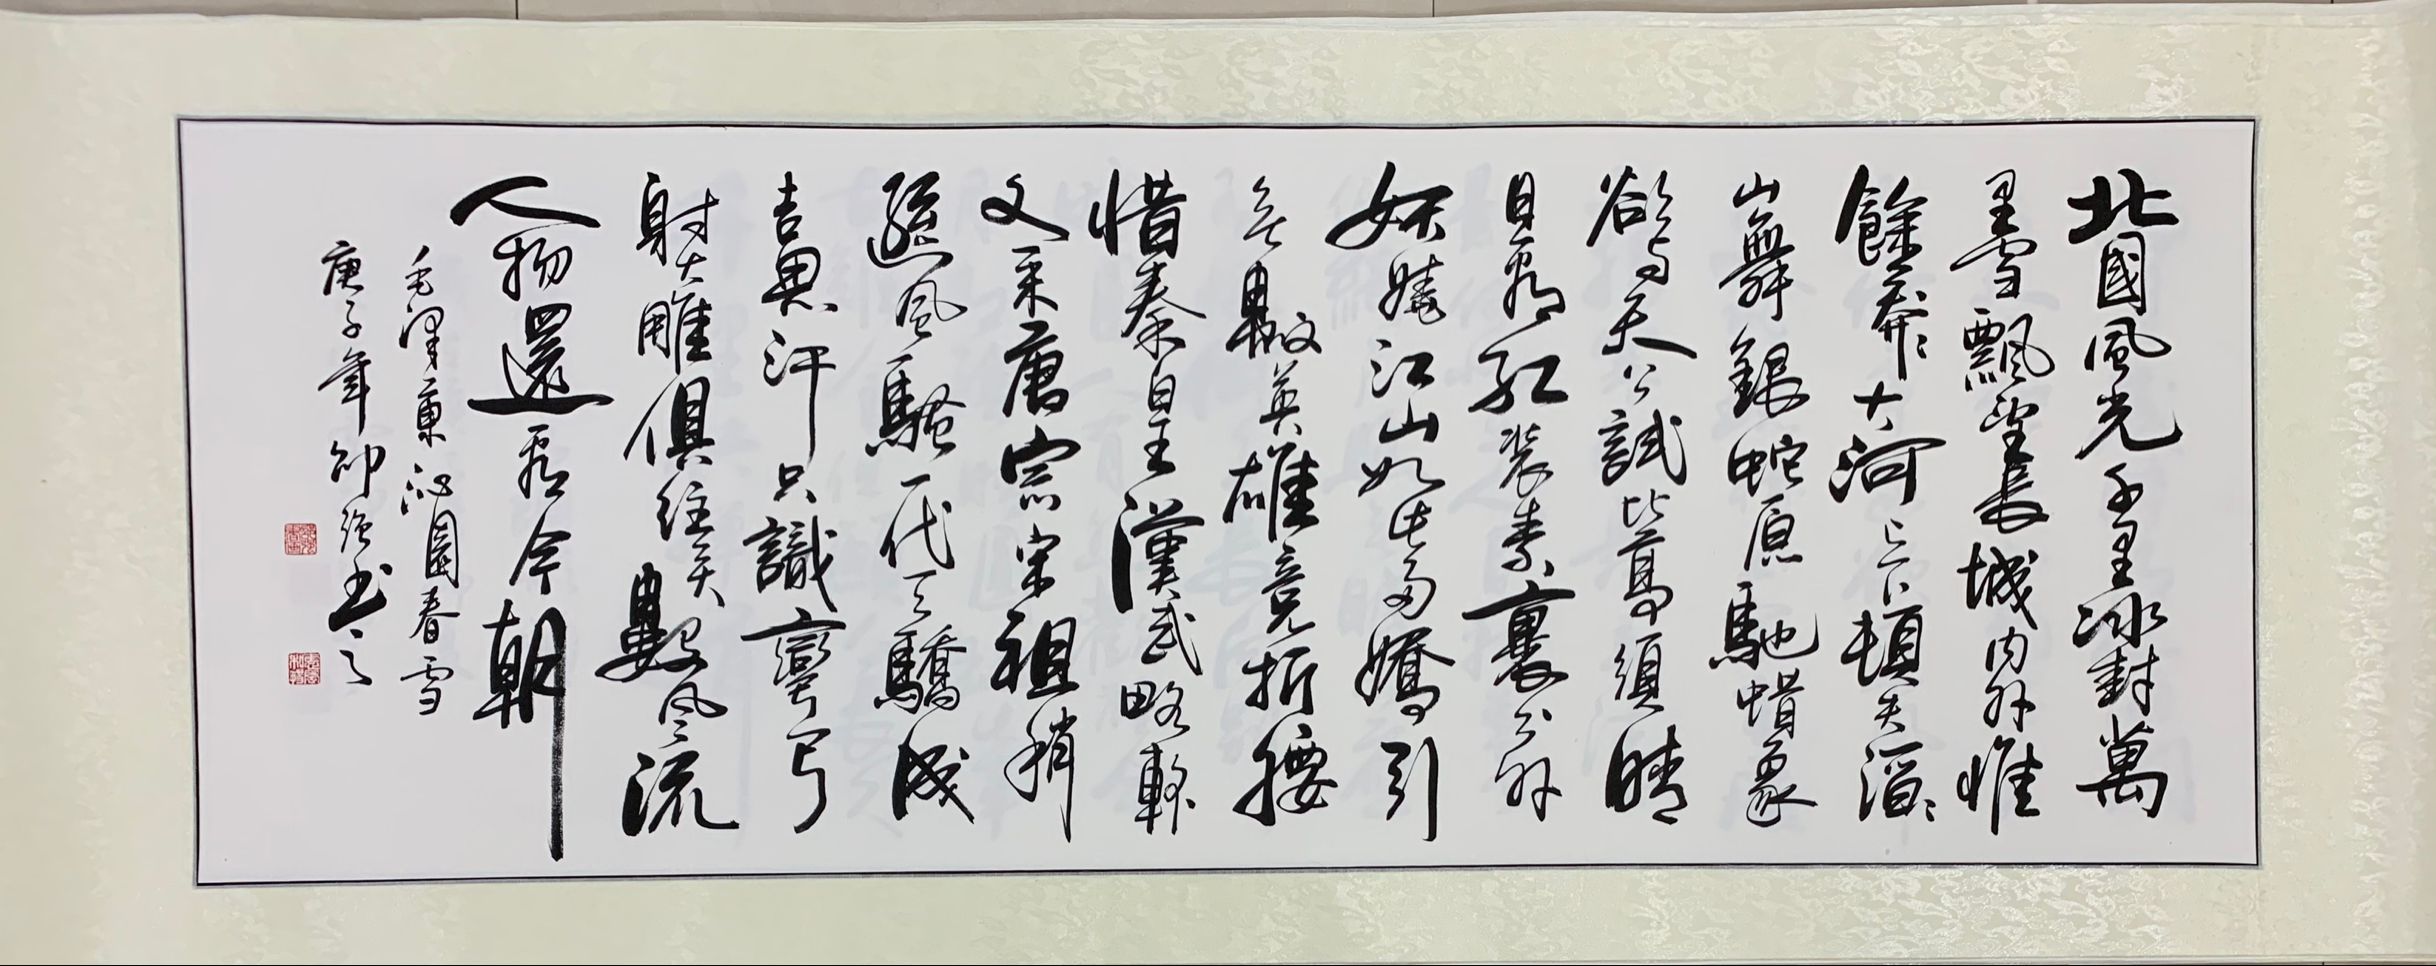 北國風光千里冰封萬
里雪飄望長城內外惟
餘莽々大河上下頓失滔々
山舞銀蛇原馳蜡象
欲與天公試比高須晴
日看紅裝素裹分外
妖嬈江山如此多嬌引
無數英雄競折腰
惜秦皇漢武略輸
文采唐宗宋祖稍
遜風騷一代天驕成
吉思汗只識彎弓
射大雕俱往矣數風流
人物還看今朝
毛澤東沁園春雪
庚子年 強書之